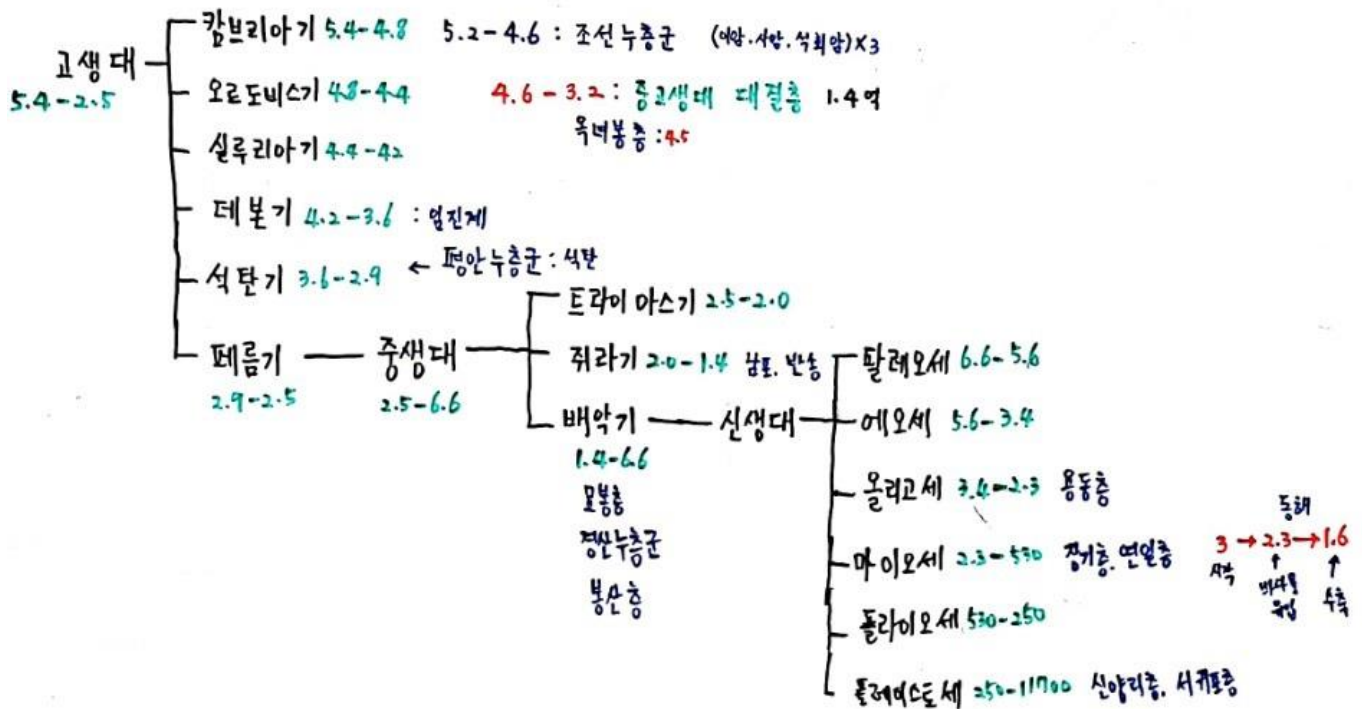 고생대
5.4-2.5
캄브리아기 5.4-4.8 5.2-4.6 : 조선누층군 (이암.사암.석회암)×3
오르도비스기 4.8-4.4 4.6-3.2 : 중고생대 대결층 1.4억
옥녀봉층 : 4.5
실루리아기 4.4-42
데본기 4.2-3.6 : 임진계
석탄기 3.6-2.9 ← 평안누층군 : 석탄
페름기
2.9-2.5
중생대
2.5-6.6
트라이아스기 2.5-2.0
쥐라기 2.0-1.4 남포. 반송
배악기
1.4-6.6
묘봉층
경산누층군
봉산층
신생대
팔레오세 6.6-5.6
에오세 5.6-3.4
올리고세 3.4-2.3 용동층
마이오세 2.3-530 장기층. 연일층
플라이오세 530-250
플레이스토세 250-11700 신양리층. 서귀포층
동해
3 → 2.3 → 1.6
시작
바닷물
유입
수축